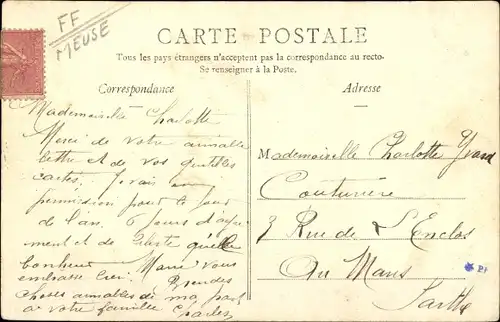 FF
MEUSE
CARTE POSTALE
Tous les pays étrangers n'acceptent pas la correspondance au recto-
Se renseigner à la Poste.
Correspondance
Adresse
Mademoiselle Charlotte
Merci de votre aimable
lettre et de vos gentilles
cartes, j'irais en
permission pour le jour
de l'an. 6 jours d'agré
ment et de liberté quelle
bonheur. Marie vous
embrasse bien.
choses aimables de ma part
à votre famille Charles
Mademoiselle Charlotte Yvard
Couturière
3 Rue de L'Enclos
Au Mans
Sarthe